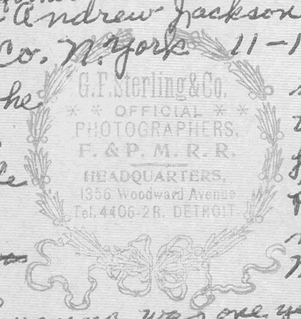 Andrew Jackson
Co. N. York 11-1
G. F. Sterling & Co.
OFFICIAL
PHOTOGRAPHERS.
F. & P. M. R. R.
HEADQUARTERS,
1356 Woodward Avenue
Tel. 4406-2R. DETROIT
was one